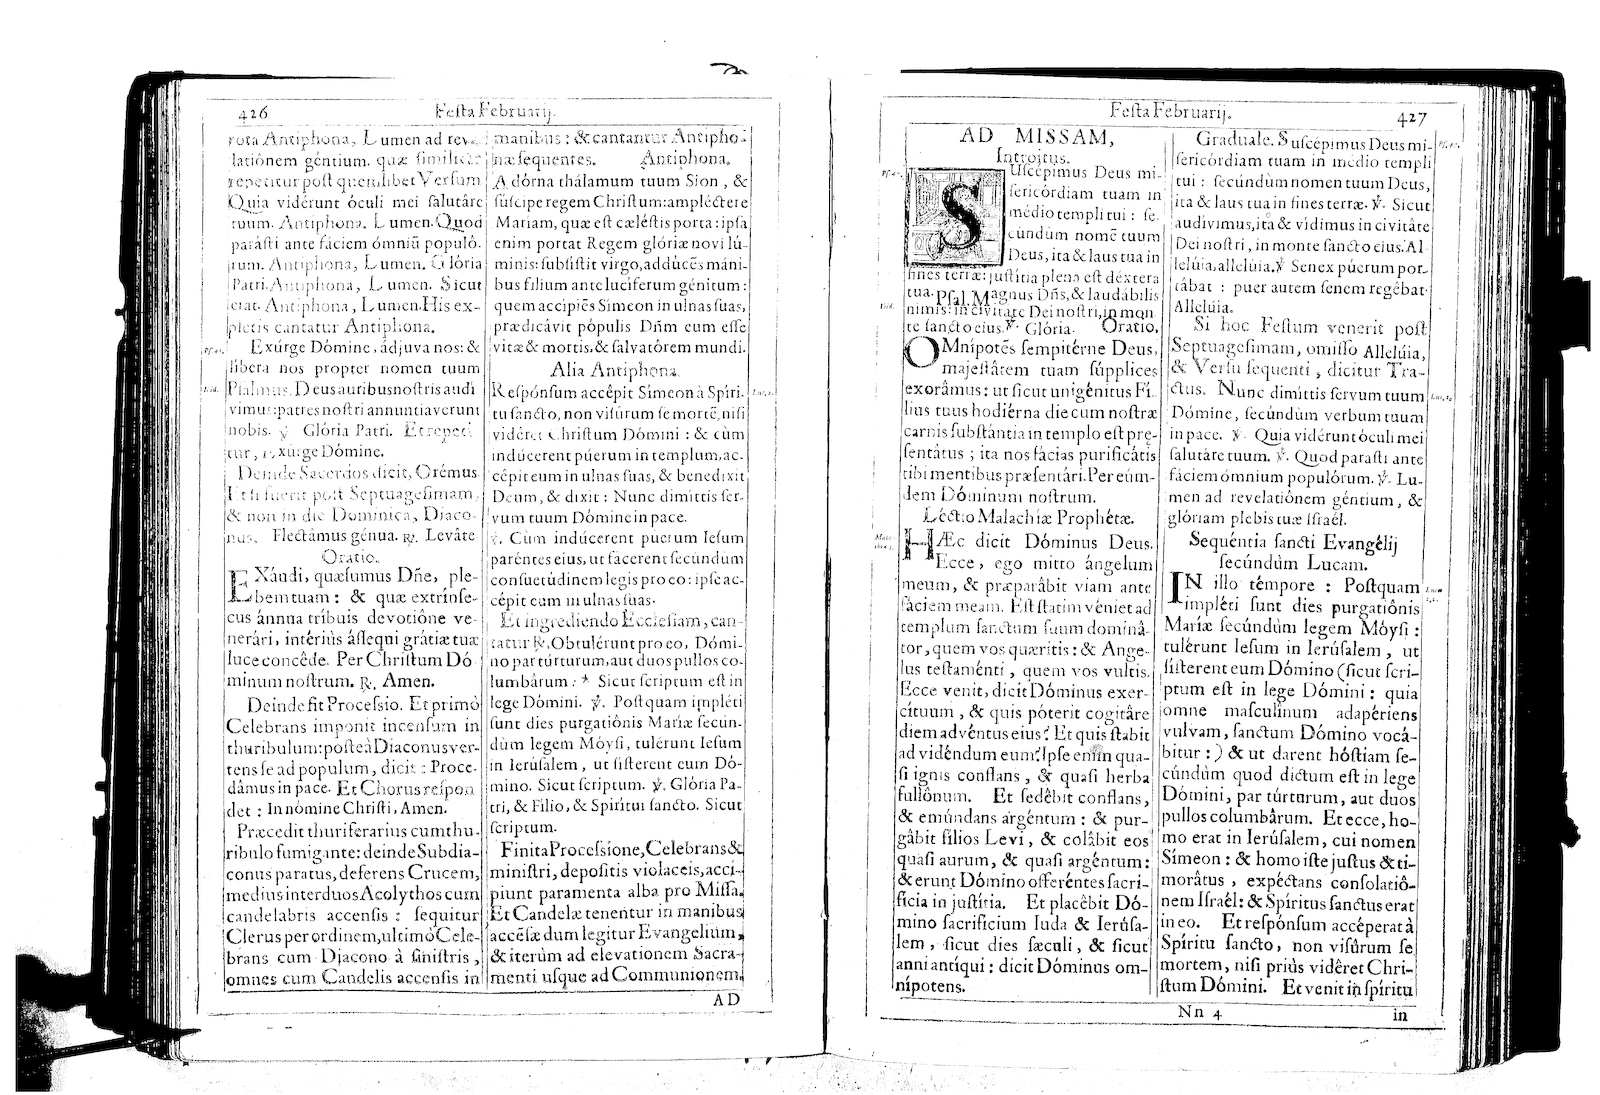 426
Festa Februarij.
tota Antiphona, Lumen ad reve-
latiónem géntium. quæ similiter
repetitur post quemlibet Versum
Quia vidérunt óculi mei salutáre
tuum. Antiphona. Lumen. Quod
parásti ante fáciem ómniũ populó-
rum. Antiphona, Lumen. Glória
Patri. Antiphona, Lumen. Sicut
erat. Antiphona, Lumen. His ex-
pletis cantatur Antiphona.
Exúrge Dómine, ádjuva nos: &
líbera nos propter nomen tuum
Psalmus. Deus auribus nostris audi
vimus: patres nostri annuntiaverunt
nobis. ℣. Glória Patri. Et repeti
tur, Exúrge Dómine.
Deinde Sacerdos dicit, Orémus.
Et si fuerit post Septuagesimam,
& non in die Dominica, Diaco-
nus. Flectámus génua. ℟. Leváte
Oratio.
EXáudi, quæsumus Dñe, ple-
bem tuam: & quæ extrínse-
cus ánnua tríbuis devotióne ve-
nerári, intériùs ássequi grátiæ tuæ
luce concêde. Per Christum Dó-
minum nostrum. ℟. Amen.
Deinde fit Processio. Et primò
Celebrans imponit incensum in
thuribulum: posteà Diaconus ver-
tens se ad populum, dicit: Proce-
dâmus in pace. Et Chorus respon
det: In nómine Christi, Amen.
Præcedit thuriferarius cum thu-
ribulo fumigante: deinde Subdia-
conus paratus, deferens Crucem,
medius inter duos Acolythos cum
candelabris accensis: sequitur
Clerus per ordinem, ultimò Cele-
brans cum Diacono à sinistris,
omnes cum Candelis accensis in
manibus: & cantantur Antipho-
næ sequentes. Antiphona.
Adórna thálamum tuum Sion, &
súscipe regem Christum: ampléctere
Mariam, quæ est cæléstis porta: ipsa
enim portat Regem glóriæ novi lú-
minis: subsistit virgo, addúcẽs máni-
bus filium ante luciferum génitum:
quem accipiẽs Simeon in ulnas suas,
prædicâvit pópulis Dñm eum esse
vitæ & mortis, & salvatórem mundi.
Alia Antiphona.
Respónsum accêpit Simeon à Spiri-
tu sancto, non visúrum se mortẽ, nisi
vidéret Christum Dómini: & cùm
indúcerent púerum in templum, ac-
cépit eum in ulnas suas, & benedixit
Deum, & dixit: Nunc dimíttis ser-
vum tuum Dómine in pace.
℣. Cùm indúcerent púerum Iesum
paréntes eius, ut fácerent secúndùm
consuetúdinem legis pro eo: ipse ac-
cépit eum in ulnas suas.
Et ingrediendo Ecclesiam, can-
tatur ℟. Obtulérunt pro eo, Dómi-
no par túrturum, aut duos pullos co-
lumbárum: * Sicut scriptum est in
lege Dómini. ℣. Postquam impléti
sunt dies purgatiónis Maríæ secún-
dùm legem Móysi, tulérunt Iesum
in Ierúsalem, ut sisterent eum Dó-
mino. Sicut scriptum. ℣. Glória Pa-
tri, & Filio, & Spirítui sancto. Sicut
scriptum.
Finita Processione, Celebrans &
ministri, depositis violaceis, acci-
piunt paramenta alba pro Missa.
Et Candelæ tenentur in manibus
accẽsæ dum legitur Evangelium,
& iterùm ad elevationem Sacra-
menti usque ad Communionem.
AD
Festa Februarij.
427
AD MISSAM,
Introitus.
SUscépimus Deus mi-
sericórdiam tuam in
médio templi tui: se-
cúndùm nomẽ tuum
Deus, ita & laus tua in
fines terræ: justítia plena est déxtera
tua. Psal. Magnus Dñs, & laudábilis
nimis: in civitáte Dei nostri, in mon
te sancto eius. ℣. Glória. Oratio.
OMnípotẽs sempitérne Deus,
majestâtem tuam súpplices
exorâmus: ut sicut unigénitus Fí-
lius tuus hodiérna die cum nostræ
carnis substântia in templo est prę-
sentátus; ita nos fácias purificátis
tibi mentibus præsentári. Per eúm-
dem Dóminum nostrum.
Léctio Malachiæ Prophétæ.
HÆc dicit Dóminus Deus.
Ecce, ego mitto ângelum
meum, & præparâbit viam ante
fáciem meam. Et statim véniet ad
templum sanctum suum dominâ-
tor, quem vos quæritis: & Ange-
lus testaménti, quem vos vultis.
Ecce venit, dicit Dóminus exer-
cítuum, & quis póterit cogitâre
diem advéntus eius? Et quis stabit
ad vidéndum eum? Ipse enim qua-
si ignis conflans, & quasi herba
fullônum. Et sedêbit conflans,
& emúndans argéntum: & pur-
gâbit fílios Levi, & colâbit eos
quasi aurum, & quasi argéntum:
& erunt Dómino offeréntes sacri-
fícia in justítia. Et placêbit Dó-
mino sacrificium Iuda & Ierúsa-
lem, sicut dies sæculi, & sicut
anni antíqui: dicit Dóminus om-
nípotens.
Graduale. Suscépimus Deus mi-
sericórdiam tuam in médio templi
tui: secúndùm nomen tuum Deus,
ita & laus tua in fines terræ. ℣. Sicut
audívimus, ita & vídimus in civitâte
Dei nostri, in monte sancto eius. Al-
lelúia, allelúia. ℣. Senex púerum por-
tâbat: puer autem senem regébat.
Allelúia.
Si hoc Festum venerit post
Septuagesimam, omisso Allelúia,
& Versu sequenti, dicitur Tra-
ctus. Nunc dimíttis servum tuum
Dómine, secúndùm verbum tuum
in pace. ℣. Quia vidérunt óculi mei
salutâre tuum. ℣. Quod parasti ante
fáciem ómnium populórum. ℣. Lu-
men ad revelatiônem géntium, &
glóriam plebis tuæ Israél.
Sequéntia sancti Evangélij
secúndùm Lucam.
IN illo témpore: Postquam
impléti sunt dies purgatiônis
Maríæ secúndùm legem Móysi:
tulérunt Iesum in Ierúsalem, ut
sísterent eum Dómino (sicut scri-
ptum est in lege Dómini: quia
omne masculínum adapériens
vulvam, sanctum Dómino vocá-
bitur:) & ut darent hóstiam se-
cúndùm quod dictum est in lege
Dómini, par túrturum, aut duos
pullos columbârum. Et ecce, ho-
mo erat in Ierúsalem, cui nomen
Símeon: & homo iste justus & ti-
morâtus, expéctans consolatiô-
nem Israél: & Spíritus sanctus erat
in eo. Et respónsum accéperat à
Spíritu sancto, non visûrum se
mortem, nisi priùs vidêret Chri-
stum Dómini. Et venit in spíritu
Nn 4
in